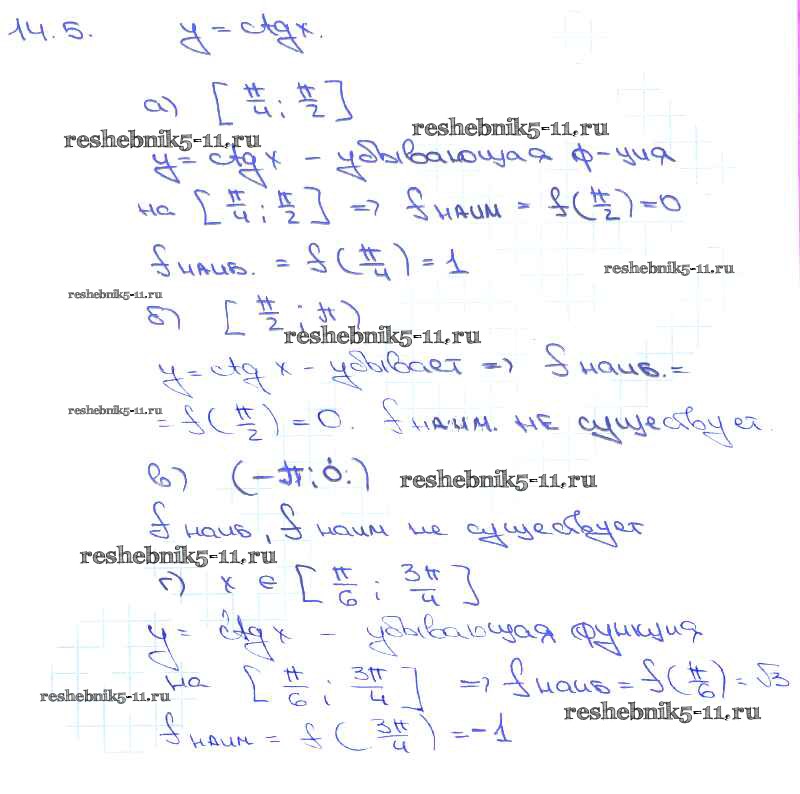 14.5. y = ctg x.
а) [π/4; π/2]
reshebnik5-11.ru reshebnik5-11.ru
y = ctg x – убывающая ф-ция
на [π/4; π/2] => fнаим = f(π/2) = 0
fнаиб. = f(π/4) = 1
reshebnik5-11.ru
reshebnik5-11.ru
б) [π/2; π)
reshebnik5-11.ru
y = ctg x – убывает => fнаиб. =
reshebnik5-11.ru
= f(π/2) = 0. fнаим. не существует.
в) (-π; 0)
reshebnik5-11.ru
fнаиб, fнаим не существует
reshebnik5-11.ru
г) x ∈ [π/6; 3π/4]
y = ctg x – убывающая функция
на [π/6; 3π/4] => fнаиб = f(π/6) = √3
reshebnik5-11.ru
reshebnik5-11.ru
fнаим = f(3π/4) = -1